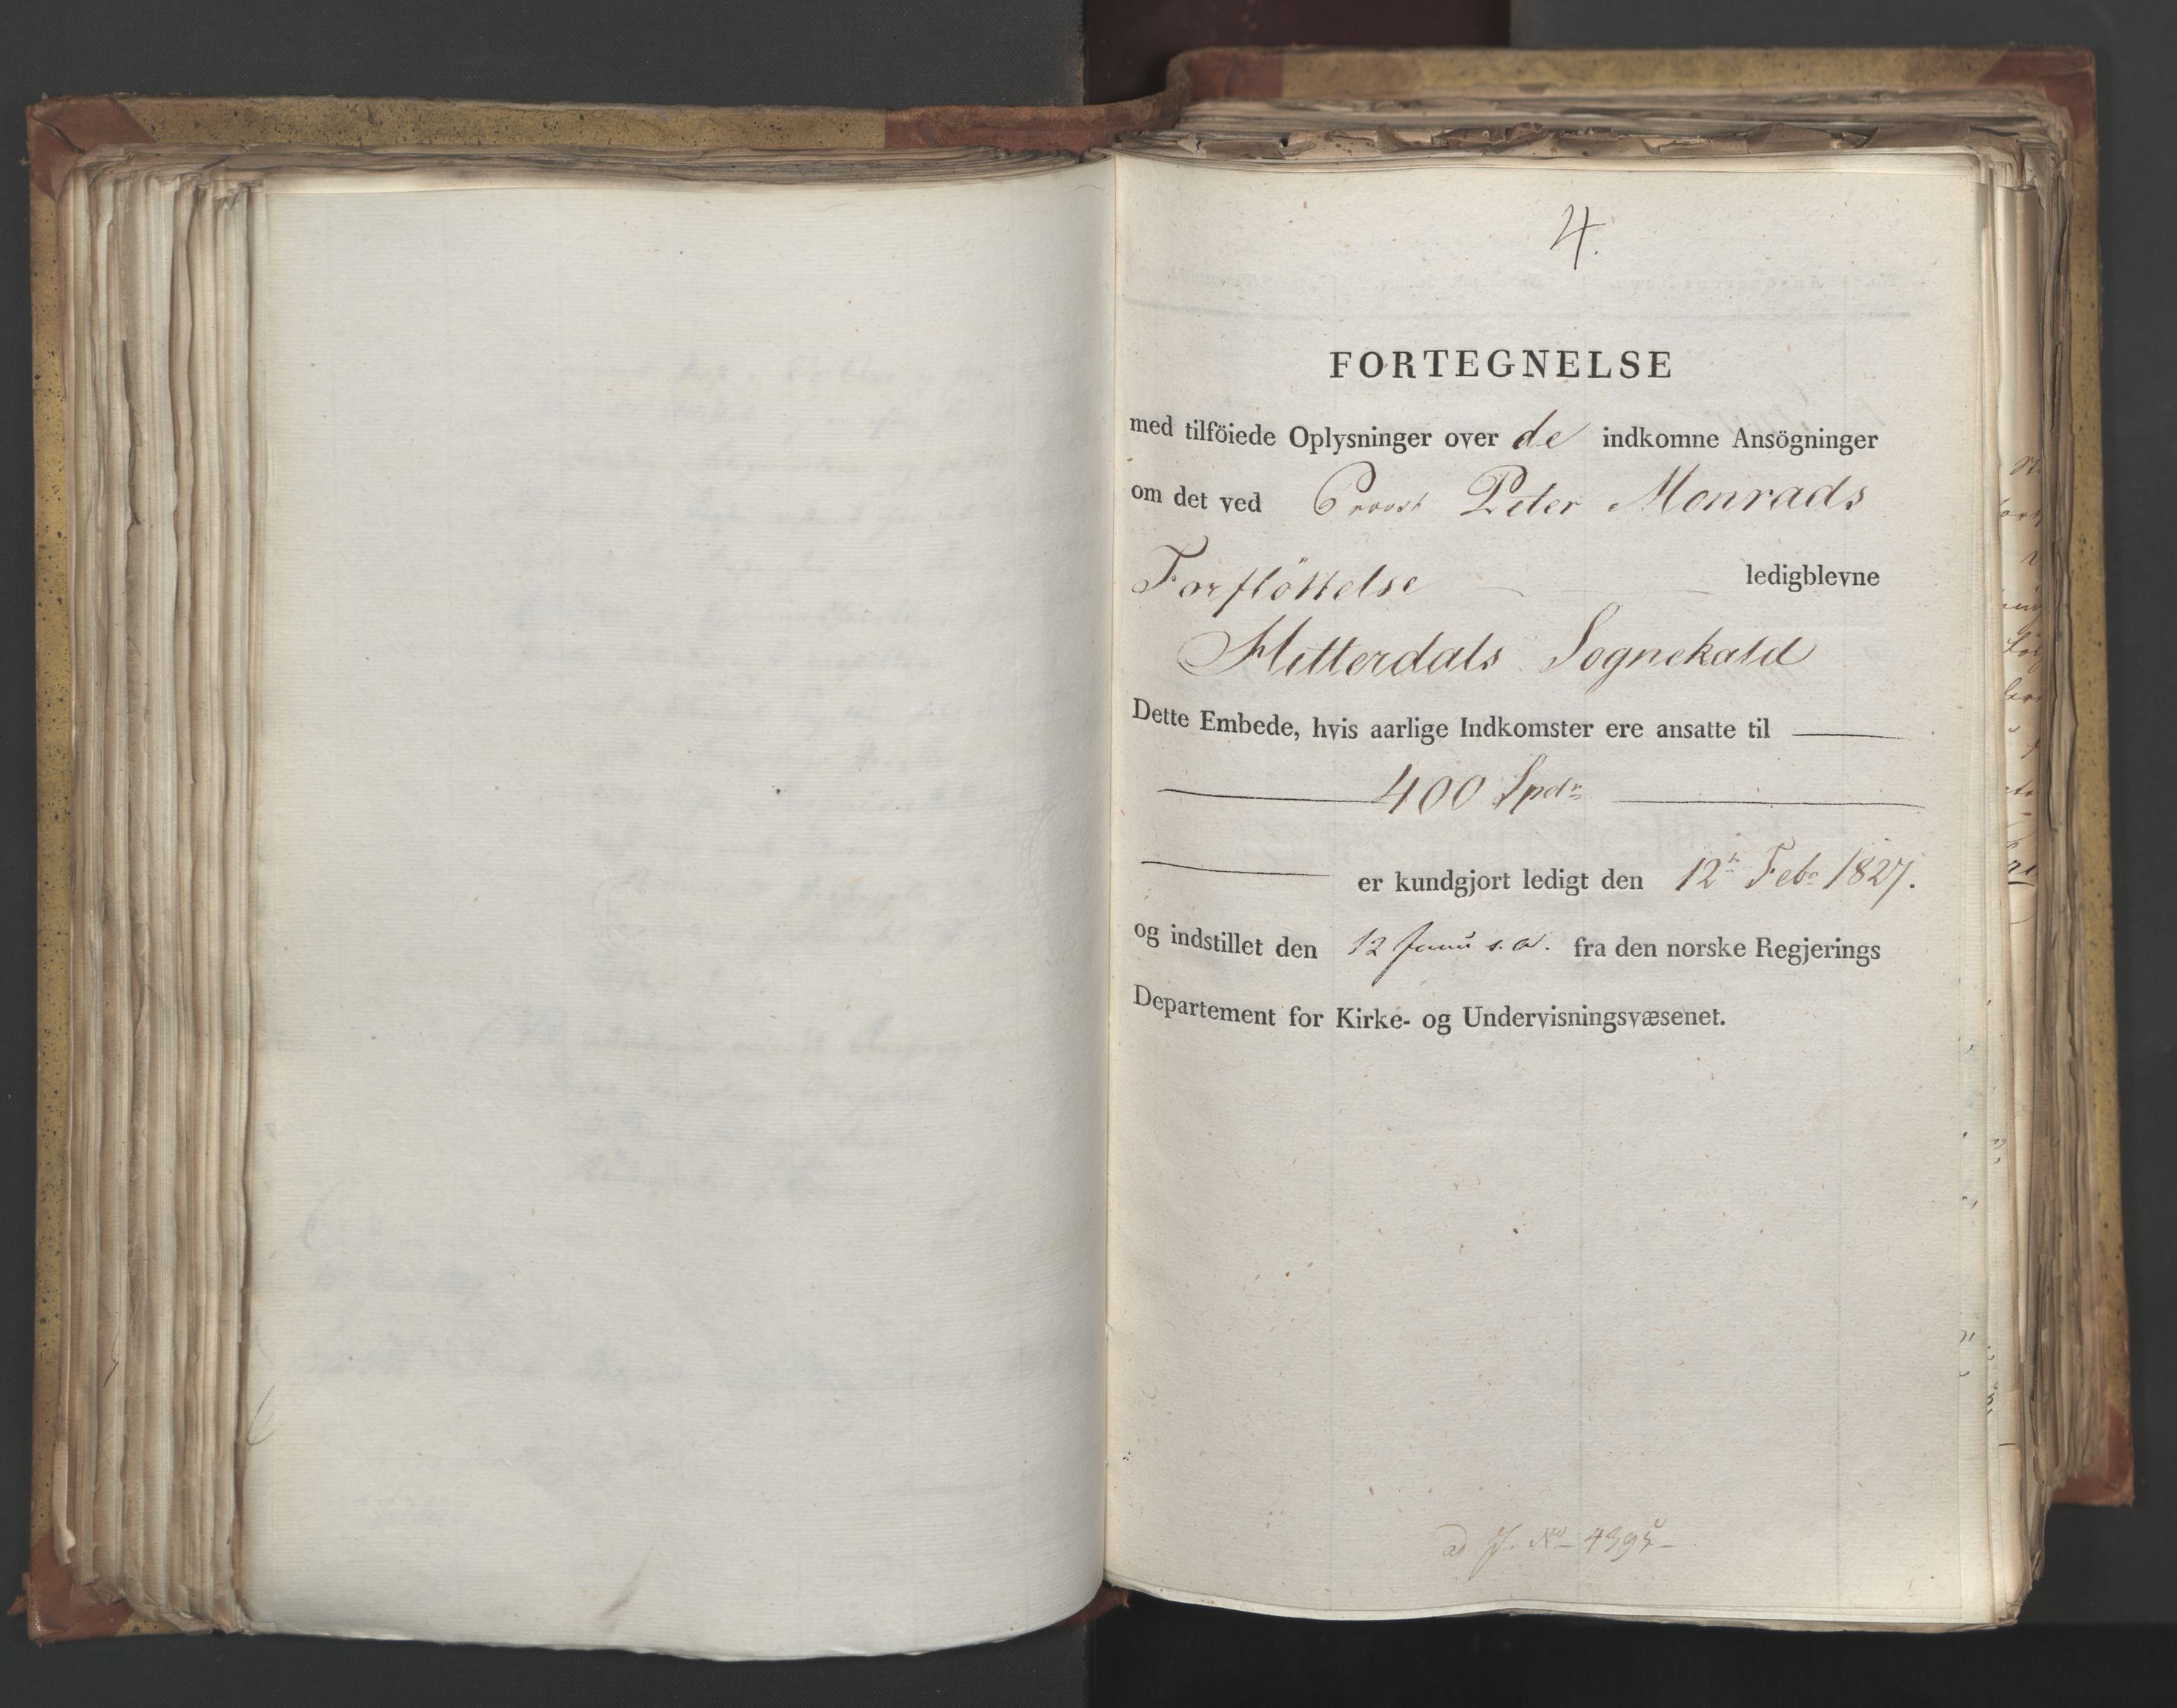 4.
FORTEGNELSE
med tilföiede Oplysninger over de indkomne Ansögninger
om det ved Provst Peter Monrads
Forflöttelse ledigblevne
Hitterdals Sognekald
Dette Embede, hvis aarlige Indkomster ere ansatte til
400 Spdr
er kundgjort ledigt den 12te Febr 1827.
og indstillet den 12 Junii s. A. fra den norske Regjerings
Departement for Kirke- og Undervisningsvæsenet.
ad J. No 4395